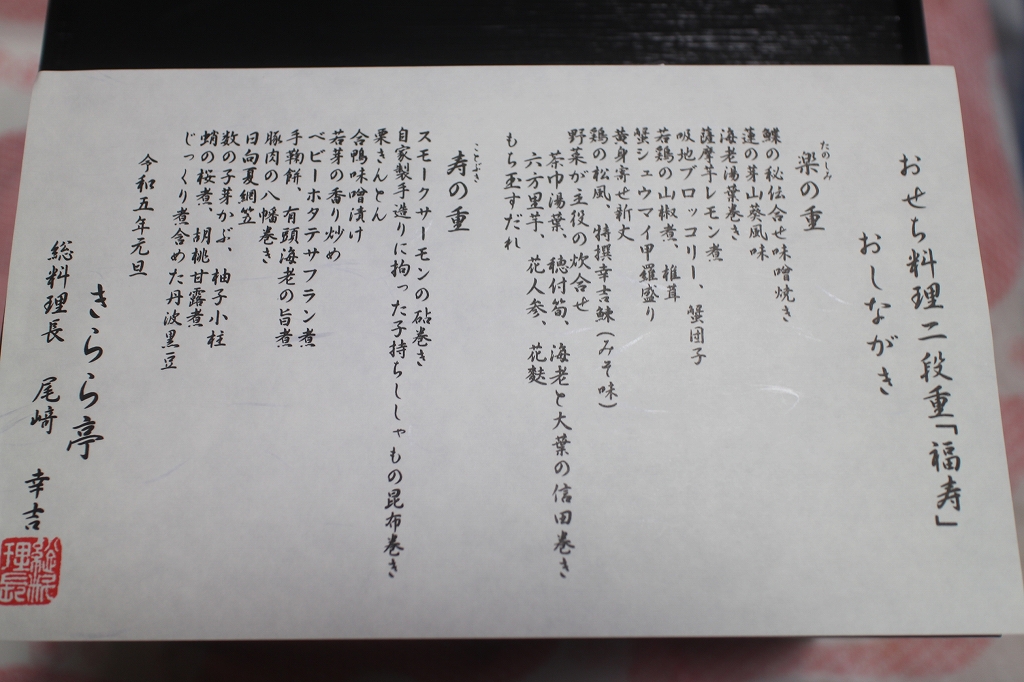 おせち料理二段重「福寿」
おしながき
たのしみ
楽の重
鰈の秘伝合せ味噌焼き
蓮の芽山葵風味
海老湯葉巻き
薩摩芋レモン煮
吸地ブロッコリー、蟹団子
若鶏の山椒煮、椎茸
蟹シュウマイ甲羅盛り
黄身寄せ新丈
鶏の松風、特撰幸吉鰊(みそ味)
野菜が主役の炊合せ
茶巾湯葉、穂付筍、海老と大葉の信田巻き
六方里芋、花人参、花麩
もち玉すだれ
ことぶき
寿の重
スモークサーモンの砧巻き
自家製手造りに拘った子持ちししゃもの昆布巻き
栗きんとん
合鴨味噌漬け
若芽の香り炒め
ベビーホタテサフラン煮
手鞠餅、有頭海老の旨煮
豚肉の八幡巻き
日向夏網笠
数の子芽かぶ、柚子小柱
蛸の桜煮、胡桃甘露煮
じっくり煮含めた丹波黒豆
令和五年元旦
きらら亭
総料理長 尾﨑 幸吉
総料理長